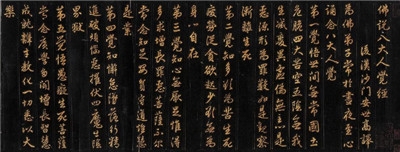 佛說八大人覺經
後漢沙門安世高譯
為佛弟子常於晝夜至心
誦念八大人覺
第一覺悟世間無常國土
危脆四大苦空五陰無我
生滅變異虛偽無主心是
惡源形為罪藪如是觀察
漸離生死
第二覺知多欲為苦生死
疲勞從貪欲起少欲無為
身心自在
第三覺知心無厭足惟得
多求增長罪惡菩薩不尔
常念知足安貧守道惟慧
是業
第四覺知懈怠墜落常行精
進破煩惱惡摧伏四魔出陰
界獄
第五覺悟愚癡生死菩薩
常念廣學多聞增長智慧
成就辯才教化一切悉以大
樂